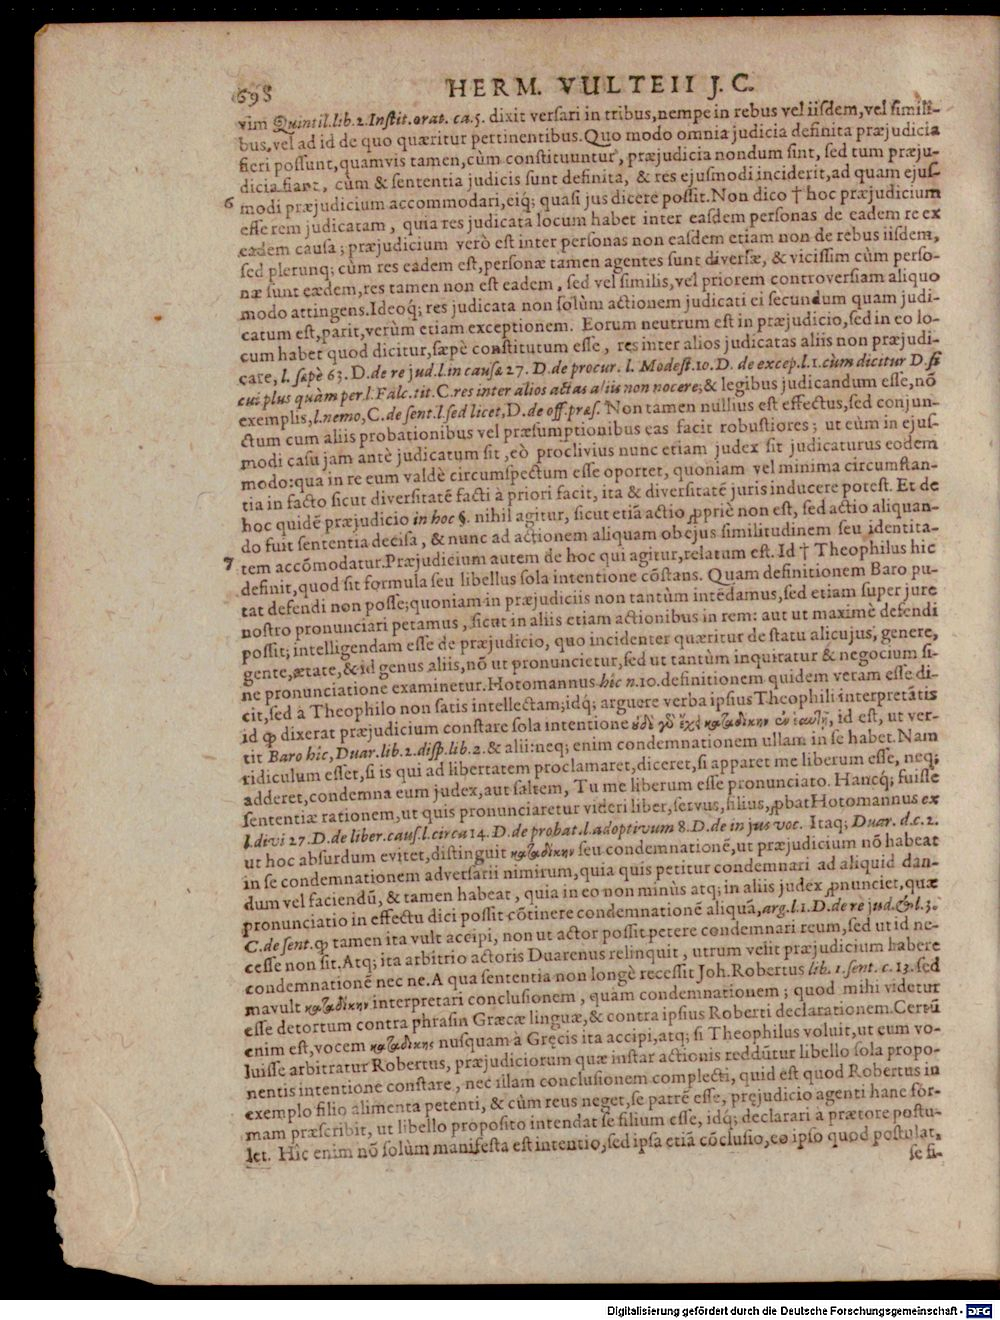 698
HERM. VULTEII J. C.
vim Quintil.lib.2.Instit.orat.ca.5. dixit versari in tribus,nempe in rebus vel iisdem,vel simili-
bus,vel ad id de quo quæritur pertinentibus.Quo modo omnia judicia definita præjudicia
fieri possunt,quamvis tamen,cùm constituuntur, præjudicia nondum sint, sed tum præju-
dicia fiant, cùm & sententia judicis sunt definita, & res ejusmodi inciderit,ad quam ejus-
6 modi præjudicium accommodari,eiq; quasi jus dicere possit.Non dico † hoc præjudicium
esse rem judicatam, quia res judicata locum habet inter easdem personas de eadem re ex
eadem causa; præjudicium verò est inter personas non easdem etiam non de rebus iisdem,
sed plerunq; cùm res eadem est,personæ tamen agentes sunt diversæ, & vicissim cùm perso-
næ sunt eædem,res tamen non est eadem, sed vel similis,vel priorem controversiam aliquo
modo attingens.Ideoq́; res judicata non solùm actionem judicati ei secundum quam judi-
catum est,parit,verùm etiam exceptionem. Eorum neutrum est in præjudicio,sed in eo lo-
cum habet quod dicitur,sæpè constitutum esse, res inter alios judicatas aliis non præjudi-
care, l. sæpè 63. D.de re jud.l.in causa 27. D.de procur. l. Modest.10.D. de excep.l.1.cùm dicitur D.si
cui plus quàm per l.Falc.tit.C.res inter alios actas aliis non nocere;& legibus judicandum esse,nõ
exemplis,l.nemo,C.de sent.l.sed licet,D.de off.præs. Non tamen nullius est effectus,sed conjun-
ctum cum aliis probationibus vel præsumptionibus eas facit robustiores; ut cùm in ejus-
modi casu jam antè judicatum sit,eò proclivius nunc etiam judex sit judicaturus eodem
modo:qua in re eum valdè circumspectum esse oportet, quoniam vel minima circumstan-
tia in facto sicut diversitatẽ facti à priori facit, ita & diversitatẽ juris inducere potest. Et de
hoc quidẽ præjudicio in hoc §. nihil agitur, sicut etiã actio ꝓpriè non est, sed actio aliquan-
do fuit sententia decisa, & nunc ad actionem aliquam ob ejus similitudinem seu identita-
7 tem accõmodatur.Præjudicium autem de hoc qui agitur,relatum est. Id † Theophilus hic
definit,quod sit formula seu libellus sola intentione cõstans. Quam definitionem Baro pu-
tat defendi non posse;quoniam in præjudiciis non tantùm intẽdamus,sed etiam super jure
nostro pronunciari petamus, sicut in aliis etiam actionibus in rem: aut ut maximè defendi
possit; intelligendam esse de præjudicio, quo incidenter quæritur de statu alicujus, genere,
gente,ætate,& id genus aliis,nõ ut pronuncietur,sed ut tantùm inquiratur & negocium si-
ne pronunciatione examinetur.Hotomannus hîc n.10.definitionem quidem veram esse di-
cit,sed à Theophilo non satis intellectam;idq́; arguere verba ipsius Theophili interpretãtis
id ꝙ dixerat præjudicium constare sola intentione id est, ut ver-
tit Baro hîc, Duar.lib.2.disp.lib.2.& alii:neq; enim condemnationem ullam in se habet.Nam
ridiculum esset,si is qui ad libertatem proclamaret,diceret,si apparet me liberum esse, neq;
adderet,condemna eum judex,aut saltem, Tu me liberum esse pronunciato. Hancq́; fuisse
sententiæ rationem,ut quis pronunciaretur videri liber,servus,filius,ꝓbat Hotomannus ex
l.divi 27.D.de liber.caus.l.circa 14. D.de probat.l.adoptivum 8.D.de in jus voc. Itaq; Duar. d.c.2.
ut hoc absurdum evitet,distinguit καταδίκην seu condemnationẽ,ut præjudicium nõ habeat
in se condemnationem adversarii nimirum,quia quis petitur condemnari ad aliquid dan-
dum vel faciendũ, & tamen habeat, quia in eo non minùs atq; in aliis judex ꝓnunciet,quæ
pronunciatio in effectu dici possit cõtinere condemnationẽ aliquã,arg.l.1.D.de re jud.& l.3.
C.de sent.ꝙ tamen ita vult accipi, non ut actor possit petere condemnari reum,sed ut id ne-
cesse non sit.Atq; ita arbitrio actoris Duarenus relinquit, utrum velit præjudicium habere
condemnationẽ nec ne.A qua sententia non longè recessit Joh.Robertus lib. 1.sent. c. 13.sed
mavult καταδίκην interpretari conclusionem, quàm condemnationem; quod mihi videtur
esse detortum contra phrasin Græcæ linguæ,& contra ipsius Roberti declarationem.Certũ
enim est,vocem καταδίκης nusquam à Gręcis ita accipi,atq; si Theophilus voluit,ut eum vo-
luisse arbitratur Robertus, præjudiciorum quæ instar actionis reddũtur libello sola propo-
nentis intentione constare, nec illam conclusionem complecti, quid est quod Robertus in
exemplo filio alimenta petenti, & cùm reus neget,se patrẽ esse, pręjudicio agenti hanc for-
mam præscribit, ut libello proposito intendat se filium esse, idq́; declarari à prætore postu-
let. Hîc enim nõ solùm manifesta est intentio,sed ipsa etiã cõclusio,eo ipso quod postulat,
se fi-
Digitalisierung gefördert durch die Deutsche Forschungsgemeinschaft - DFG